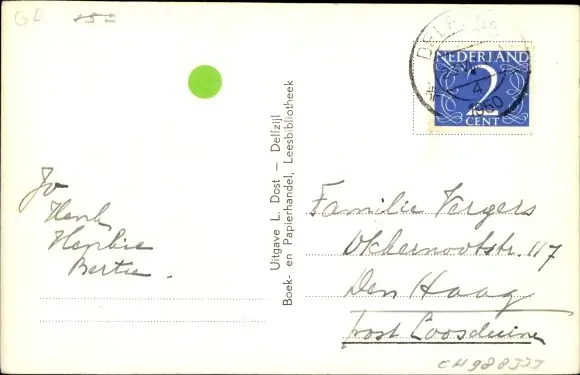 GL 15=
DELFZIJL
4
1950
NEDERLAND
2
CENT
Uitgave L. Dost — Delfzijl
Boek- en Papierhandel, Leesbibliotheek
Jo
Henk
Henkie
Bertie.
Familie Vergers
Okkernootstr. 117
Den Haag
post Loosduinen
CH988JJJ